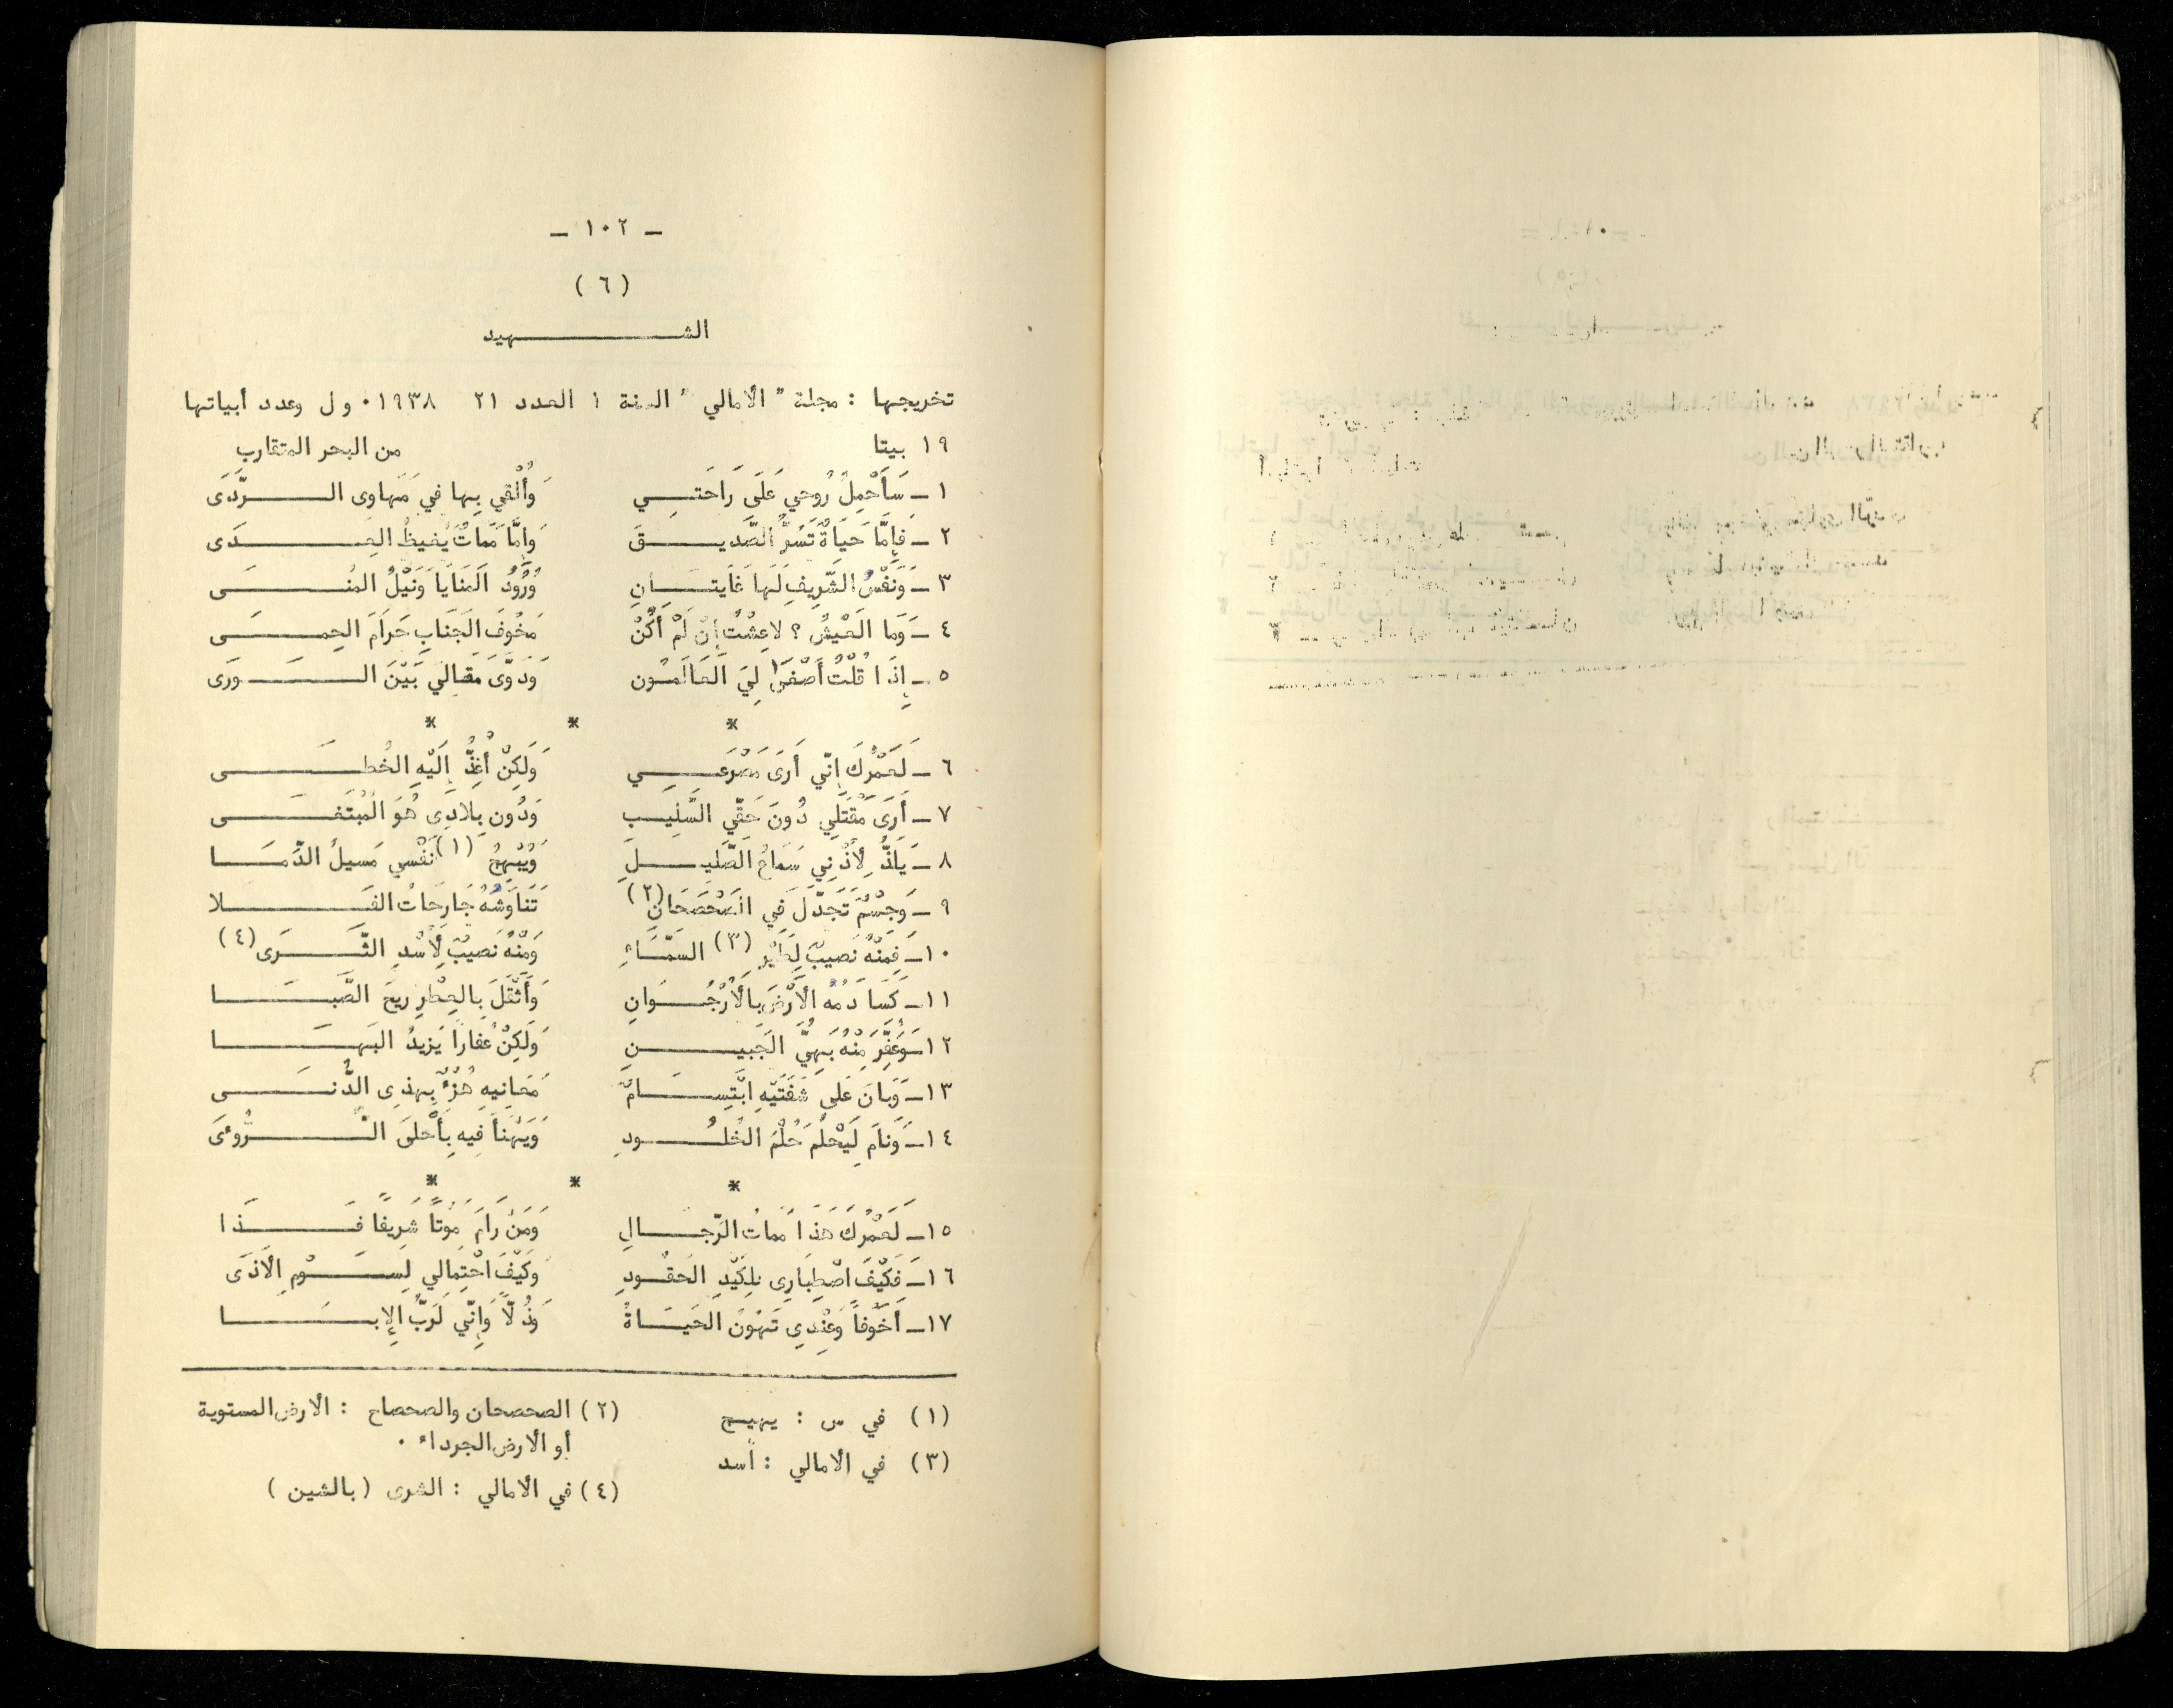 - ١٠٢ -
( ٦ )
الشهيد
تخريجها : مجلة " الأمالي " السنة ١ العدد ٢١ ١٩٣٨ . و ل وعدد أبياتها
١٩ بيتا من البحر المتقارب
١ - سَأَحْمِلُ رُوحِي عَلَى رَاحَتِي وَأُلْقِي بِها في مَهاوى الرَّدَى
٢ - فإمَّا حَيَاةٌ تَسُرُّ الصَّدِيقَ وَإِمَّا مَمَاتٌ يُغيظُ العِدَى
٣ - وَنَفْسُ الشَّرِيفِ لَهَا غَايَتَانِ وُرُودُ المَنَايَا وَنَيْلُ المُنَى
٤ - وَمَا العَيْشُ ؟ لا عِشْتُ إنْ لَمْ أَكُنْ مَخُوفَ الجَنَابِ حَرَامَ الحِمَى
٥ - إِذَا قُلْتُ أَصْغَى لِيَ العَالَمُون وَدَوَّى مَقالَي بَيْنَ الوَرَى
* * *
٦ - لَعَمْرُكَ إنّي أَرَى مَصْرَعِي وَلَكِنْ أُغِذُّ إلَيْهِ الخُطَى
٧ - أَرَى مَقْتَلِي دُونَ حَقّي السَّلِيب وَدُونِ بِلادِى هُوَ المُبْتَغَى
٨ - يَلَذُّ لِأُذْنِي سَمَاعُ الصَّلِيلِ وَيُبْهِجُ (١) نَفْسِي مَسيلُ الدِّمَا
٩ - وَجِسْمٌ تَجَدَّلَ فِي الصَّحْصَحَانِ (٢) تَنَاوَشُهُ جَارِحَاتُ الفَلا
١٠ - فَمِنْهُ نَصيبٌ لِطَيْرِ (٣) السَّمَاءِ وَمِنْهُ نَصيبٌ لِأُسْدِ الثَّرَى (٤)
١١ - كَسَا دَمُهُ الأَرْضَ بِالأُرْجُوَانِ وَأَثْقَلَ بِالعِطْرِ رِيحَ الصَّبَا
١٢ - وَعُفِّرَ مِنْهُ بَهِيُّ الجَبِينِ وَلَكِنْ عُفارًا يَزيدُ البَهَا
١٣ - وَبانَ عَلَى شَفَتَيْهِ ابْتِسَامٌ مَعَانِيهِ هُزْءٌ بِهذِى الدُّنَى
١٤ - وَنامَ لِيَحْلُمَ حُلْمَ الخُلُودِ وَيَهْنَأَ فِيهِ بِأَحْلَى الرُّوءَى
* * *
١٥ - لَعَمْرُكَ هَذَا مَمَاتُ الرّجالِ وَمَنْ رَامَ مَوْتًا شَرِيفًا فَذَا
١٦ - فَكَيْفَ اصْطِبَارِى لِكَيْدِ الحَقُودِ وَكَيْفَ احْتِمَالِي لِسَوْمِ الأَذَى
١٧ - أَخَوْفًا وَعِنْدِي تَهُونُ الحَيَاةُ وَذُلّاً وَإنّي لَرَبُّ الإبَا
(١) في س : يهيج
(٢) الصحصحان والصحصاح : الأرض المستوية
أو الأرض الجرداء .
(٣) في الأمالي : أسد
(٤) في الأمالي : الشرى ( بالشين )